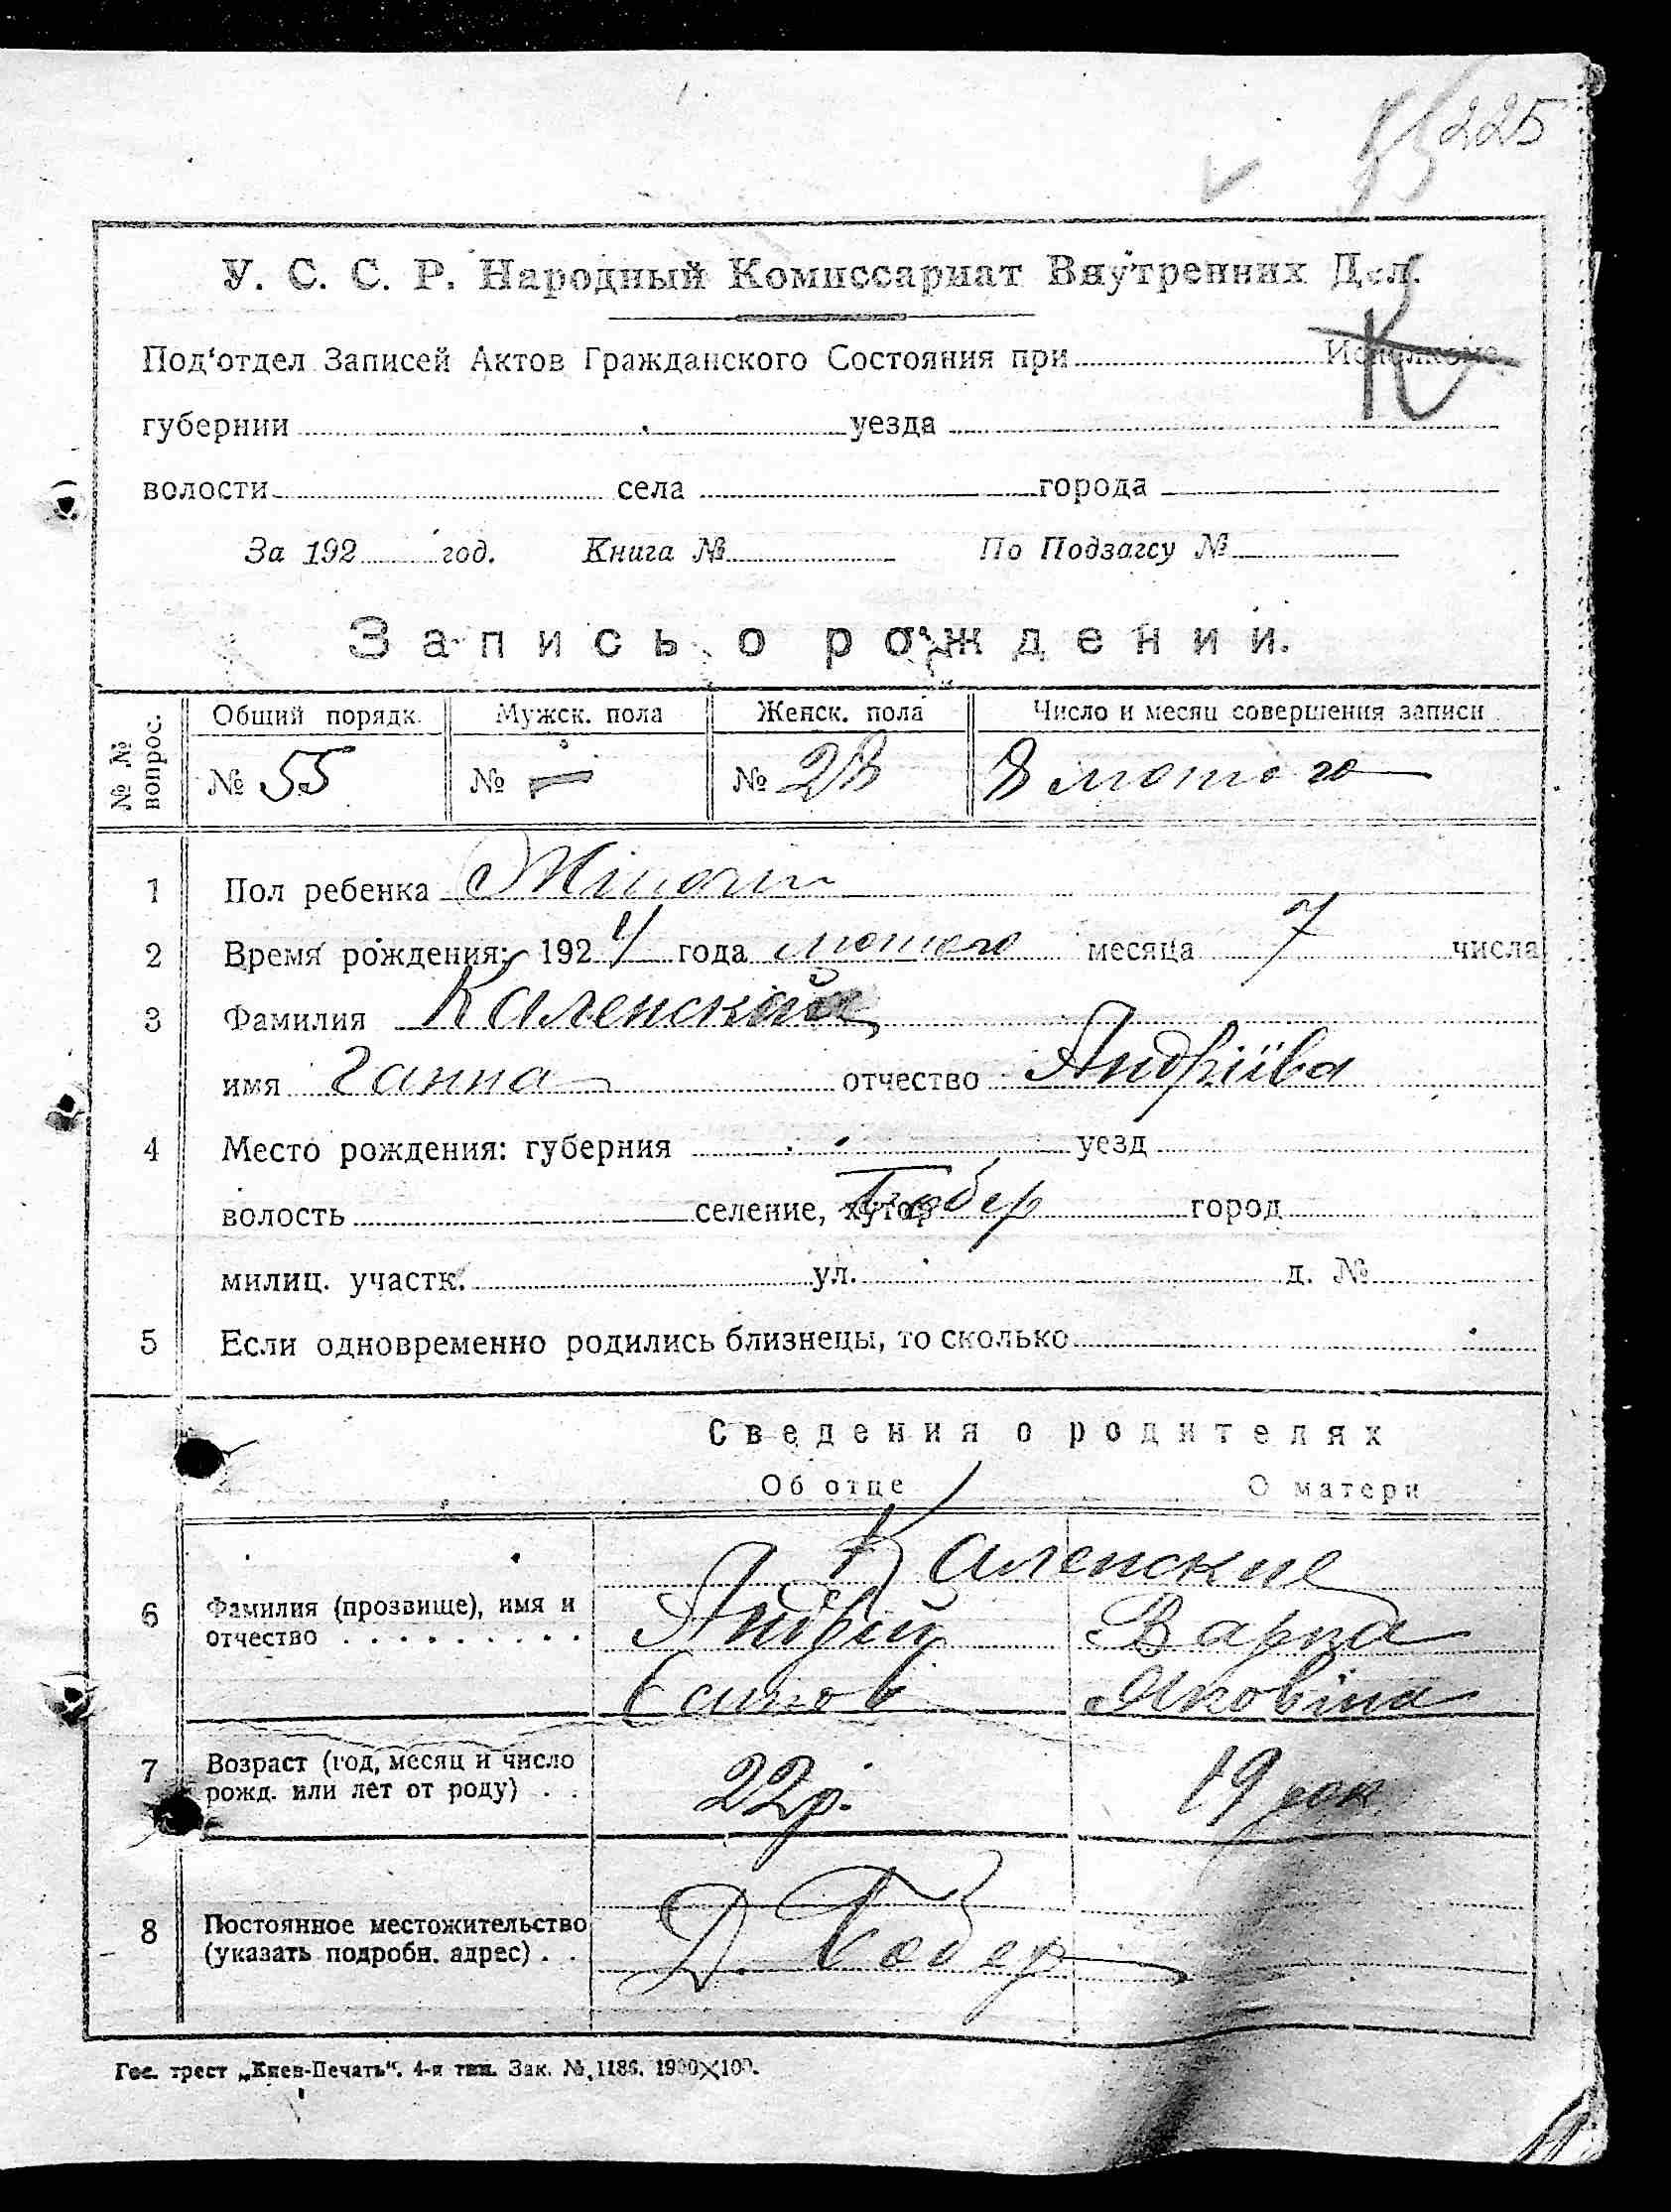 225
У. С. С. Р. Народный Комиссариат Внутренних Дел.
Под'отдел Записей Актов Гражданского Состояния при Исполкоме
губернии уезда
волости села города
За 192 год. Книга № По Подзагсу №
Запись о рождении.
№ № вопрос. Общий порядк. Мужск. пола Женск. пола Число и месяц совершения записи
№ 55 № — № 28 8 лютого
1 Пол ребенка Жіночий
2 Время рождения: 1924 года лютого месяца 7 числа
3 Фамилия Каленская
имя Ганна отчество Андріїва
4 Место рождения: губерния уезд
волость селение, хутор город
милиц. участк. ул. д. №
5 Если одновременно родились близнецы, то сколько
Сведения о родителях
Об отце О матери
Каленские
6 Фамилия (прозвище), имя и Андрій Варка
отчество Яковіна
7 Возраст (год, месяц и число 22 р. 19 рок
рожд. или лет от роду)
8 Постоянное местожительство Д.
(указать подробн. адрес)
Гос. трест „Киев-Печать“. 4-я тип. Зак. № 1186. 1900×100.